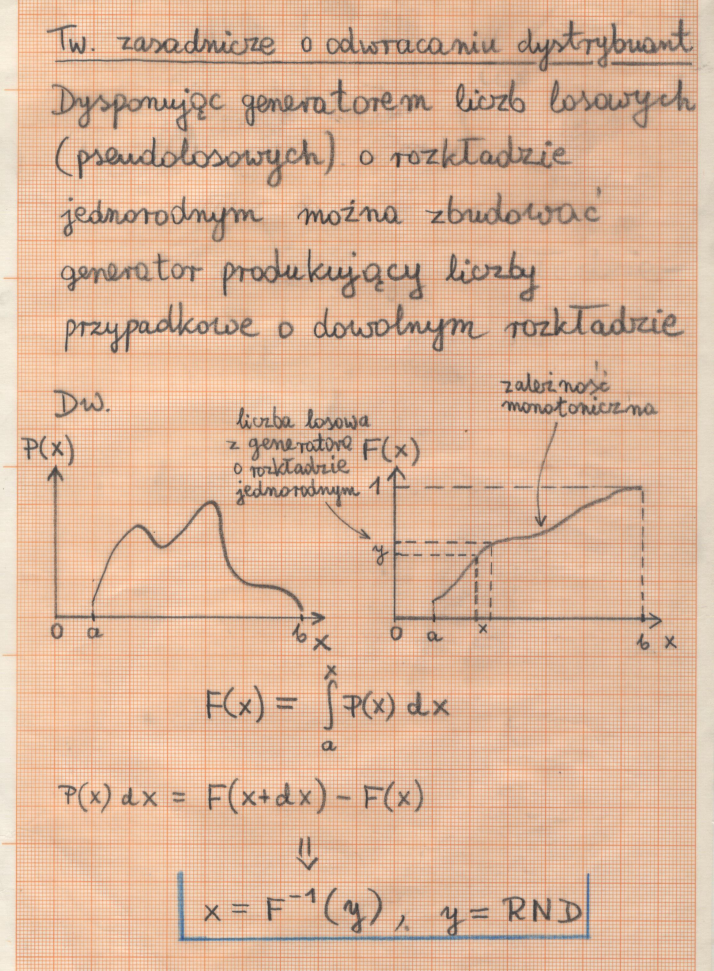 Tw. zasadnicze o odwracaniu dystrybuant
Dysponując generatorem liczb losowych
(pseudolosowych) o rozkładzie
jednorodnym można zbudować
generator produkujący liczby
przypadkowe o dowolnym rozkładzie
Dw.
P(x)
0
a
b
x
liczba losowa
z generatora
o rozkładzie
jednorodnym
zależność
monotoniczna
F(x)
1
y
0
a
x
b
x
F(x) = ∫ₐˣ P(x) dx
P(x) dx = F(x+dx) - F(x)
⇓
x = F⁻¹(y), y = RND